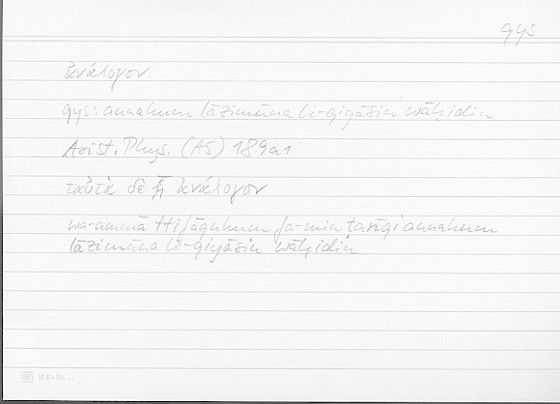 qys
ἀνάλογον
qys: annahum lāzimūna li-qiyāsin wāḥidin
Arist. Phys. (A5) 189a1
ταῦτα δὲ ᾗ ἀνάλογον
wa-ammā ttifāquhum fa-min ṭarīqi annahum
lāzimūna li-qiyāsin wāḥidin